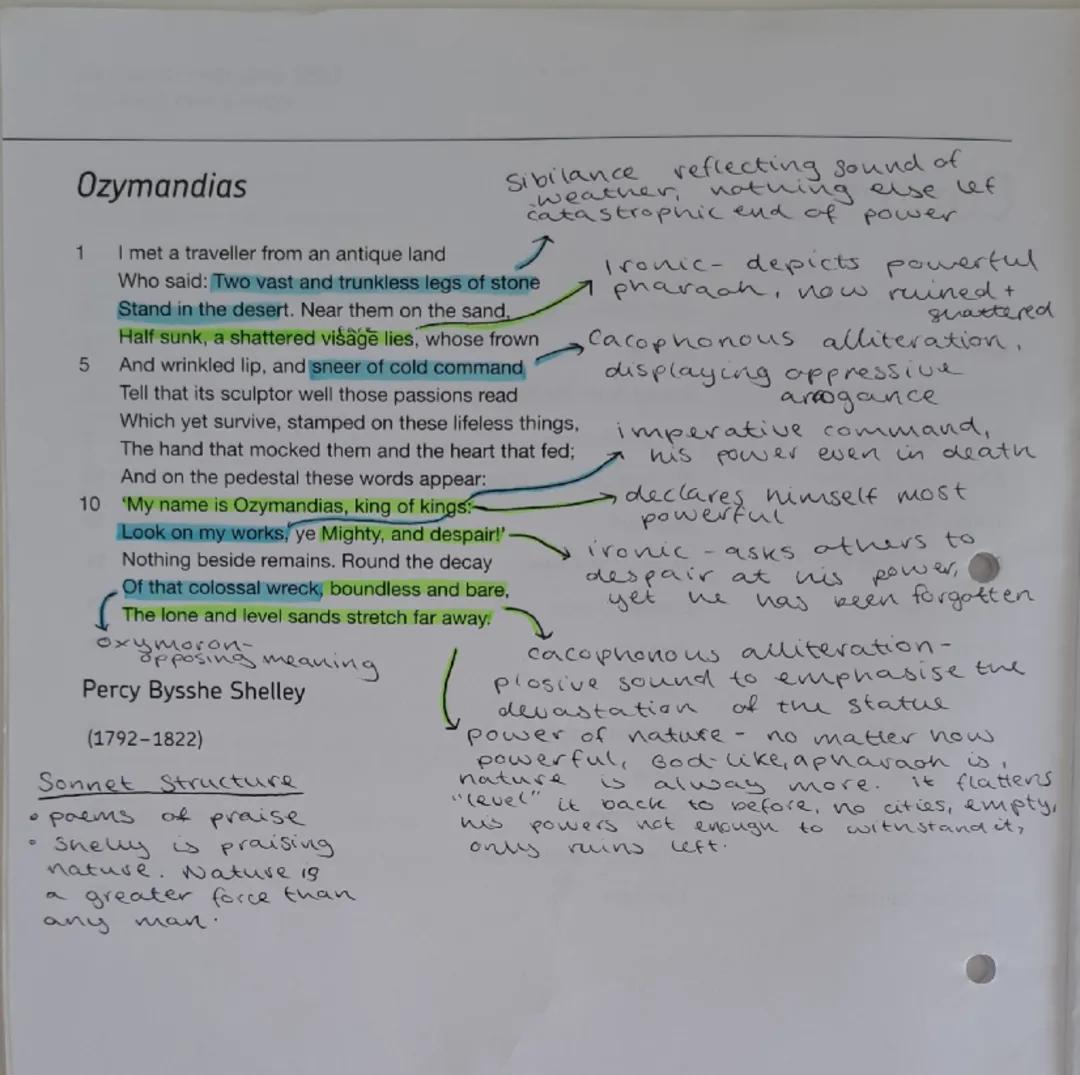 Ozymandias
1 I met a traveller from an antique land
Who said: Two vast and trunkless legs of stone
Stand in the desert. Near them on the sand,
face
Half sunk, a shattered visage lies, whose frown
5 And wrinkled lip, and sneer of cold command,
Tell that its sculptor well those passions read
Which yet survive, stamped on these lifeless things,
The hand that mocked them and the heart that fed;
And on the pedestal these words appear:
10 'My name is Ozymandias, king of kings:
Look on my works, ye Mighty, and despair!'
Nothing beside remains. Round the decay
Of that colossal wreck, boundless and bare,
The lone and level sands stretch far away.
Percy Bysshe Shelley
(1792–1822)
Sibilance reflecting sound of
weather, nothing else lef
catastrophic end of power
Ironic- depicts powerful
pharaoh, now ruined +
shattered
Cacophonous alliteration,
displaying oppressive
arrogance
imperative command,
his power even in death
declares himself most
powerful
ironic - asks others to
despair at his power,
yet he has been forgotten
oxymoron-
opposing meaning
cacophonous alliteration-
plosive sound to emphasise the
devastation of the statue
power of nature - no matter how
powerful, God-like, a pharaoh is,
nature is always more. it flattens
"level" it back to before, no cities, empty,
his powers not enough to withstand it,
only ruins left.
Sonnet Structure
• poems of praise
• Shelly is praising
nature. Nature is
a greater force than
any man.